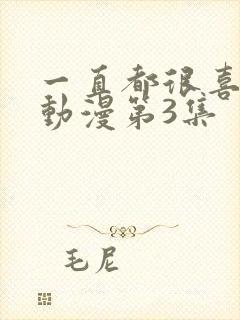 一直都很喜
動漫第3集
毛尼